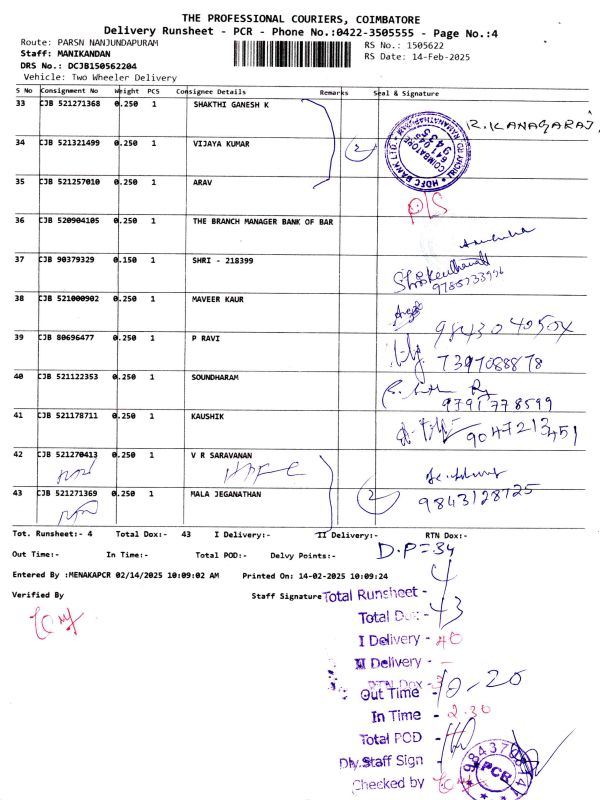 THE PROFESSIONAL COURIERS, COIMBATORE
Delivery Runsheet - PCR - Phone No.:0422-3505555 - Page No.:4
Route: PARSN NANJUNDAPURAM
RS No.: 1505622
Staff: MANIKANDAN
RS Date: 14-Feb-2025
DRS No.: DCJB150562204
Vehicle: Two Wheeler Delivery
S No Consignment No Weight PCS Consignee Details Remarks Seal & Signature
33 CJB 521271368 0.250 1 SHAKTHI GANESH K
R. KANAGARAJ
34 CJB 521321499 0.250 1 VIJAYA KUMAR
2
HDFC BANK LTD.
COIMBATORE
35 CJB 521257010 0.250 1 ARAV
P/S
36 CJB 520904105 0.250 1 THE BRANCH MANAGER BANK OF BAR
37 CJB 90379329 0.150 1 SHRI - 218399
38 CJB 521000902 0.250 1 MAVEER KAUR
39 CJB 80696477 0.250 1 P RAVI
7397088878
40 CJB 521122353 0.250 1 SOUNDHARAM
9791778599
41 CJB 521178711 0.250 1 KAUSHIK
9047213451
42 CJB 521270413 0.250 1 V R SARAVANAN
HDFC
43 CJB 521271369 0.250 1 MALA JEGANATHAN
2
9843128725
Tot. Runsheet:- 4 Total Dox:- 43 I Delivery:- II Delivery:- RTN Dox:-
Out Time:- In Time:- Total POD:- Delvy Points:-
D.P=34
Entered By :MENAKAPCR 02/14/2025 10:09:02 AM Printed On: 14-02-2025 10:09:24
Verified By Staff Signature
Total Runsheet - 4
Total Dox - 43
I Delivery - 40
II Delivery - -
RTN Dox - 3
Out Time - 10-20
In Time - 2.30
Total POD -
Dly.Staff Sign -
Checked by
PCR